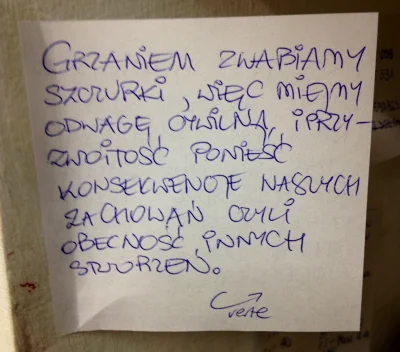 GRZANIEM ZWABIAMY
SZCZURKI, WIĘC MIEJMY
ODWAGĘ CYWILNĄ, I PRZY-
ZWOITOŚĆ PONIEŚĆ
KONSEKWENCJE NASZYCH
ZACHOWAŃ CZYLI
OBECNOŚĆ INNYCH
STWORZEŃ.
verte